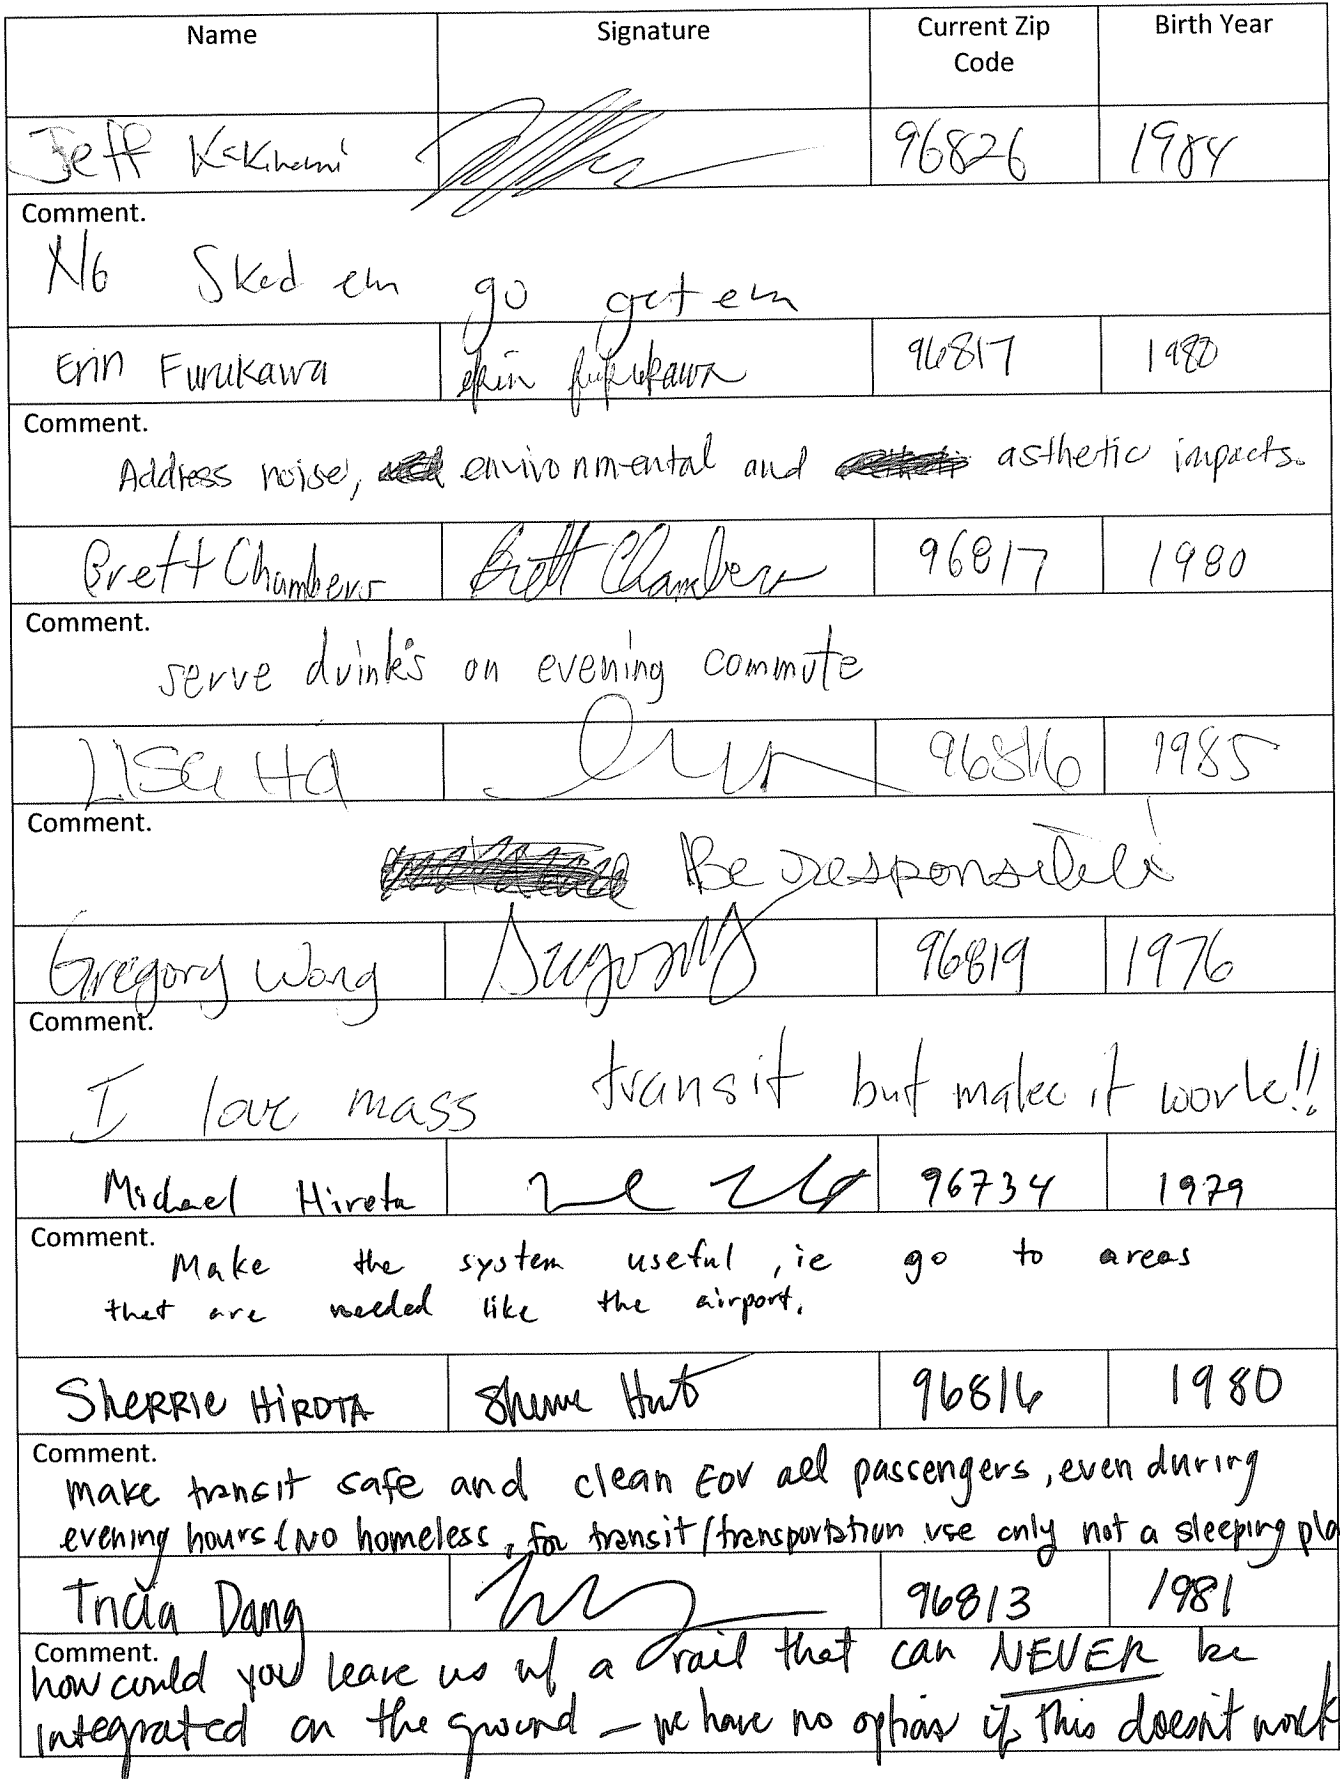 Name Signature Current Zip Code Birth Year
Jeff Kakinami 96826 1984
Comment.
No Sked em go get em
Erin Furukawa erin furukawa 96817 1980
Comment.
Address noise, environmental and asthetic impacts.
Brett Chambers Brett Chambers 96817 1980
Comment.
serve drinks on evening commute
Lisa Ha 96816 1985
Comment.
Be responsible!
Gregory Wong 96819 1976
Comment.
I love mass transit but make it work!!
Michael Hirota 96734 1979
Comment.
Make the system useful, ie go to areas
that are needed like the airport.
SHERRIE HIROTA 96816 1980
Comment.
make transit safe and clean for all passengers, even during
evening hours (No homeless, for transit/transportation use only not a sleeping pla
Tricia Dang 96813 1981
Comment.
how could you leave us w/ a rail that can NEVER be
integrated on the ground - we have no option if this doesn't work